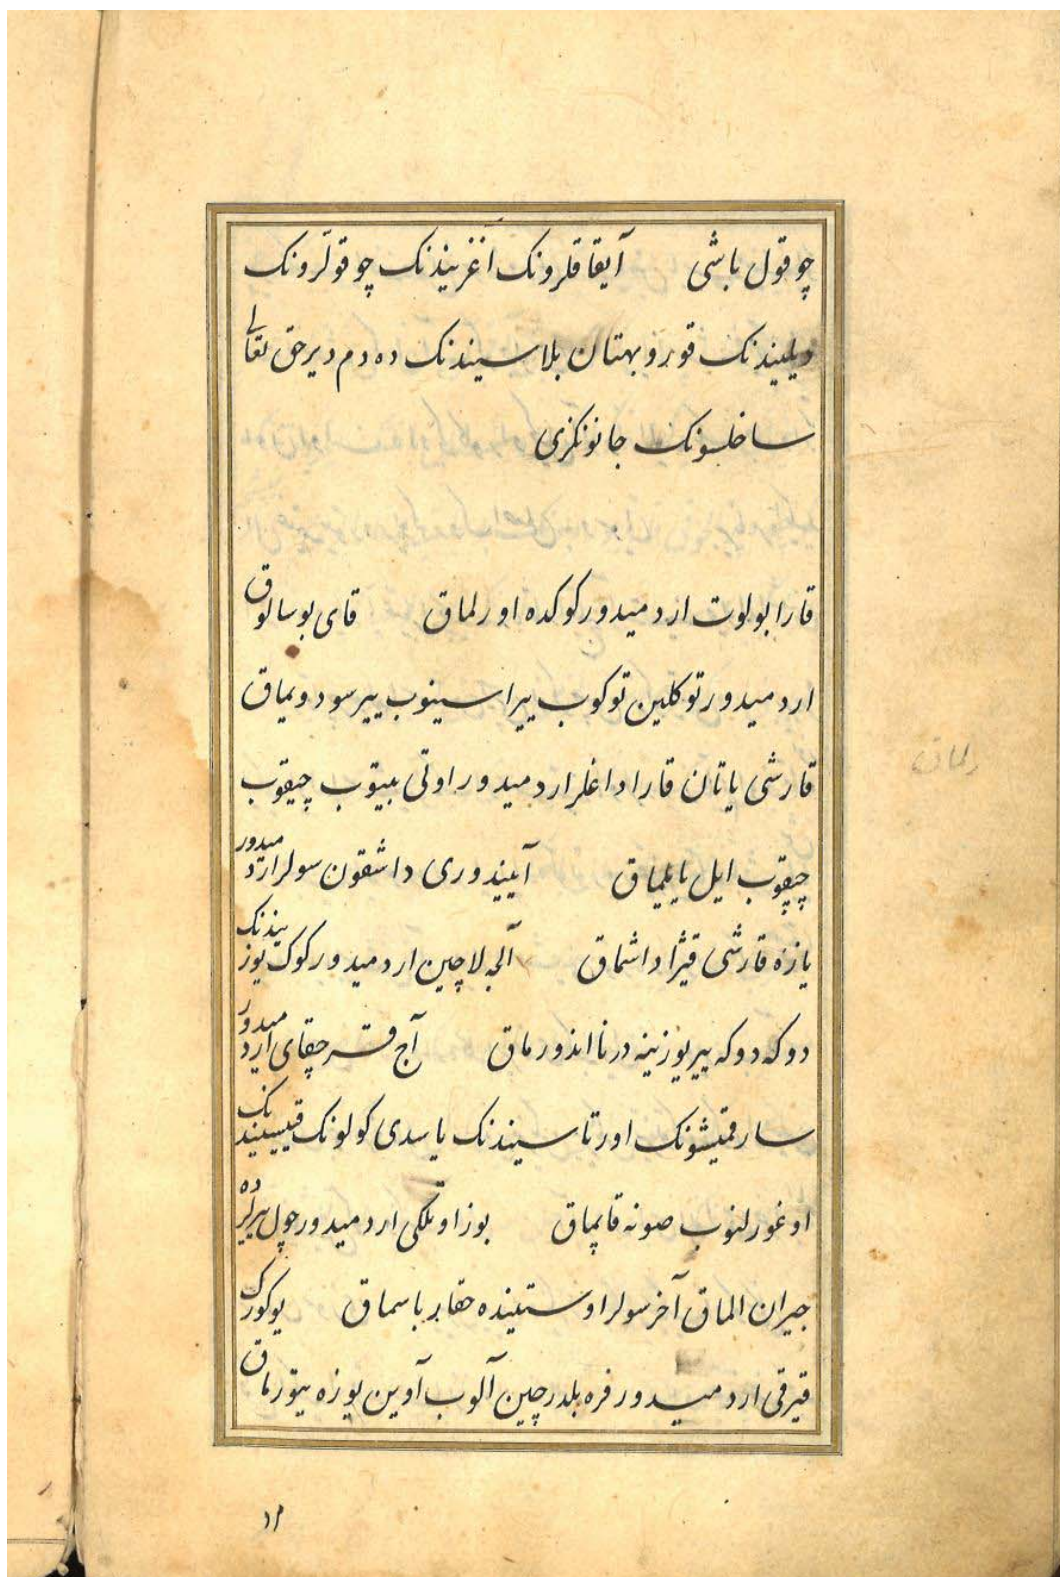 چوقول باشی آیقاقلرونک اغزیندنک چوقولرونک
دیلیندنک قورو بهتان بلاسیندنک ده دم دیر حق تعالی
ساخلسونک جانونکزی
قارا بولوت اردمیدور کوکده اورلماق قای بوسالوق
اردمیدور توکلین توکوب ییراسینوب ییرسودویماق
قارشی یاتان قارا داغلر اردمیدور اوتی بیتوب چیقوب
چیقوب ایل یایلیاق آییندوری داشقون سولر اردمیدور
یازه قارشی قیژاداشماق آلجه لاچین اردمیدور کوک یوزیندنک
دوکه دوکه ییر یوزینه درنا اندورماق آج قره چقای اردمیدور
سارقمیشونک اورتاسیندنک یاسدی کولونک قیییسیندنک
اوغورلنوب صونه قاپماق بوز اوتلکی اردمیدور چول ییرلرده
جیران الماق آخر سولر اوستینده حقابر باسماق یوکورک
قیرقی اردمیدور فره بلدرچین آلوب آوین یوزه ییتورماق
۱۳